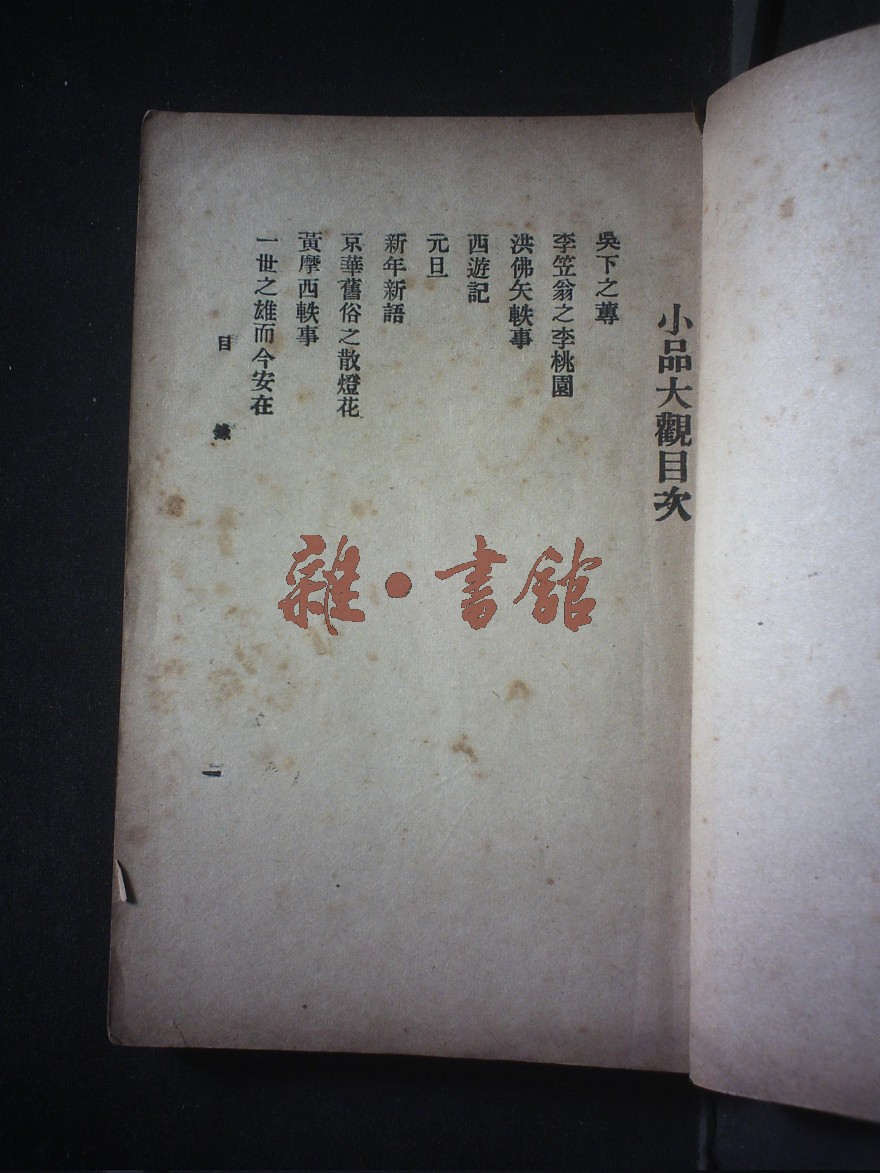 小品大觀目次
吳下之蓴
李笠翁之李桃園
洪佛矢軼事
西遊記
元旦
新年新語
京華舊俗之散燈花
黃摩西軼事
一世之雄而今安在
目錄
雜·書館